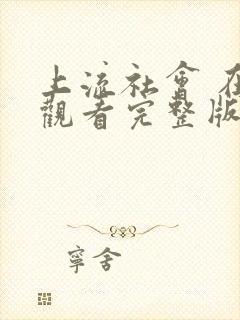 上流社會 在
觀看完整版
寧舍